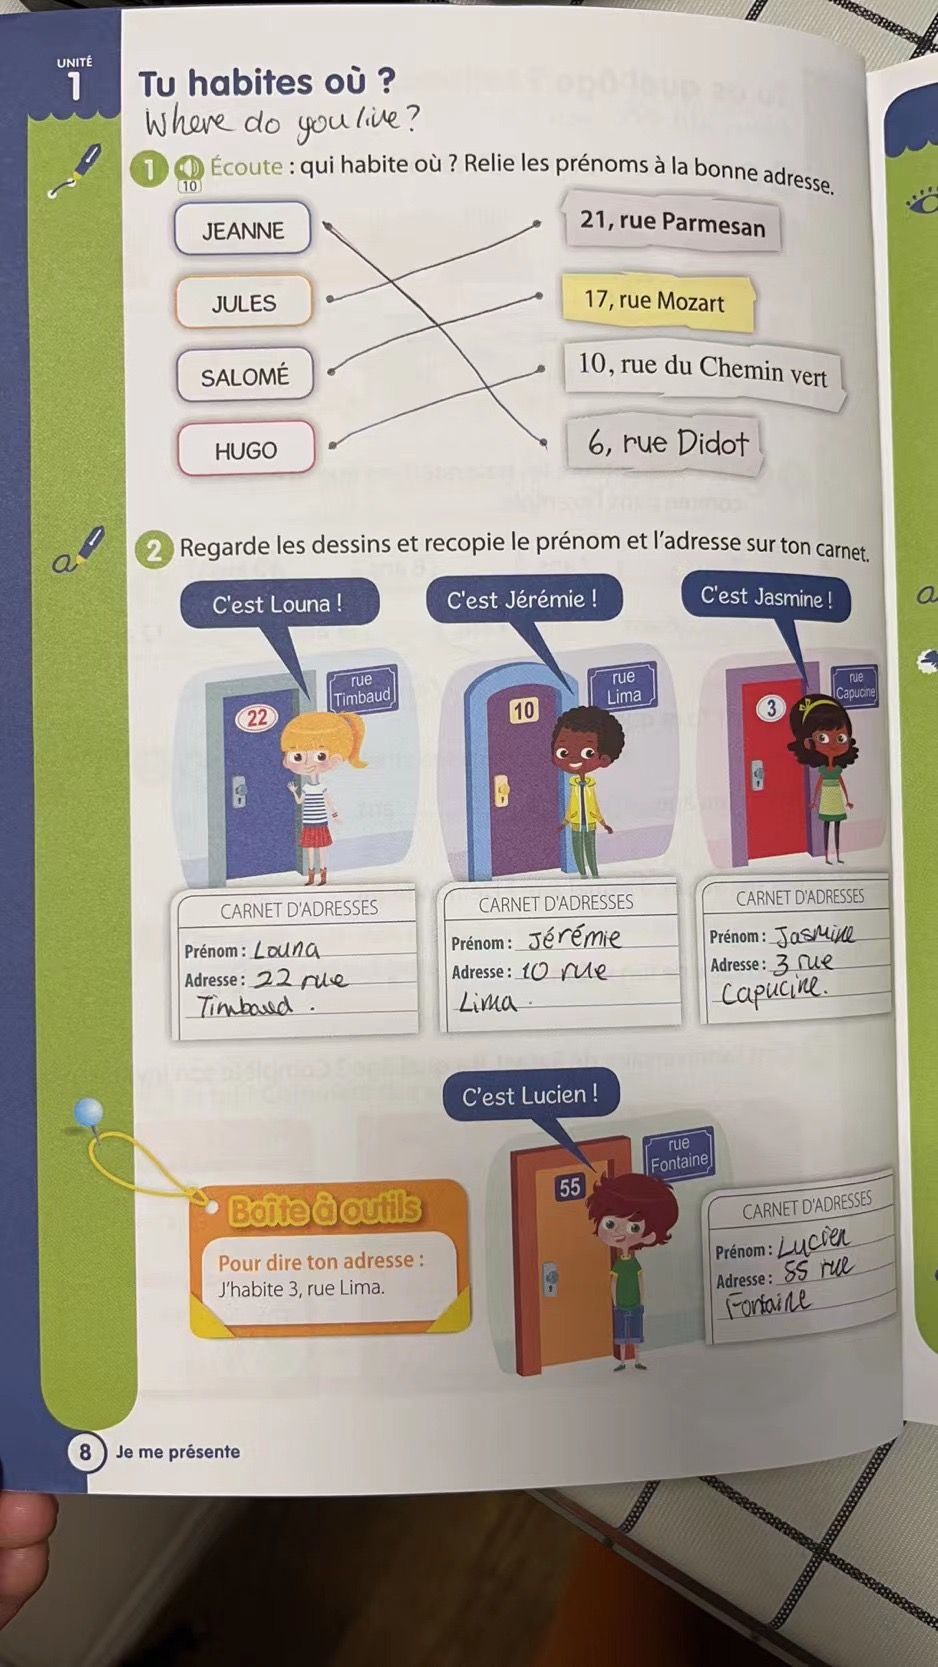 UNITÉ
1
Tu habites où ?
Where do you live?
1 Écoute : qui habite où ? Relie les prénoms à la bonne adresse.
10
JEANNE
21, rue Parmesan
JULES
17, rue Mozart
SALOMÉ
10, rue du Chemin vert
HUGO
6, rue Didot
a
2 Regarde les dessins et recopie le prénom et l'adresse sur ton carnet.
C'est Louna !
rue
Timbaud
22
CARNET D'ADRESSES
Prénom : Louna
Adresse : 22 rue
Timbaud .
C'est Jérémie !
rue
Lima
10
CARNET D'ADRESSES
Prénom : Jérémie
Adresse : 10 rue
Lima .
C'est Jasmine !
rue
Capucine
3
CARNET D'ADRESSES
Prénom : Jasmine
Adresse : 3 rue
Capucine.
C'est Lucien !
rue
Fontaine
55
CARNET D'ADRESSES
Prénom : Lucien
Adresse : 55 rue
Fontaine
Boîte à outils
Pour dire ton adresse :
J'habite 3, rue Lima.
8 Je me présente
a